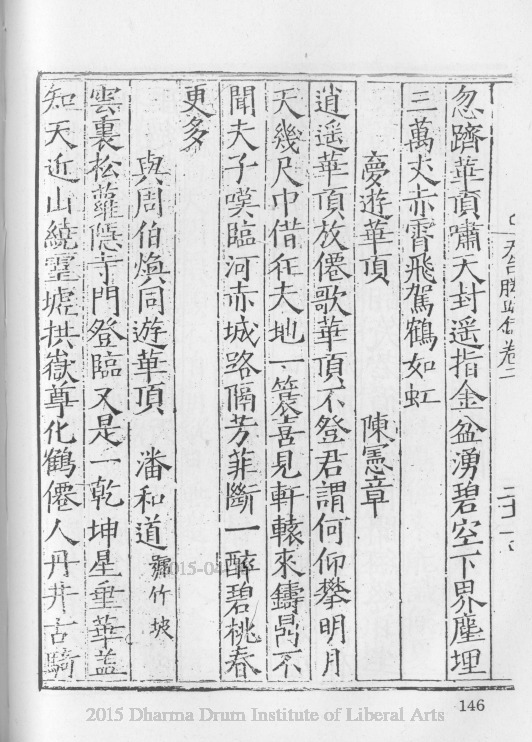 天台勝蹟錄卷二
二十一
忽躋華頂嘯天封遥指金盆湧碧空下界塵埋
三萬丈赤霄飛駕鶴如虹
夢遊華頂 陳憲章
逍遥華頂放僊歌華頂不登君謂何仰攀明月
天幾尺中借在天地一簑喜見軒轅來鑄鼎不
聞夫子嘆臨河赤城路隔芳菲斷一醉碧桃春
更多
與周伯煥同遊華頂 潘和道 號竹坡
雲裏松蘿隱寺門登臨又是一乾坤星垂華盖
知天近山繞靈墟拱嶽尊化鶴僊人丹井古騎
146
2015 Dharma Drum Institute of Liberal Arts